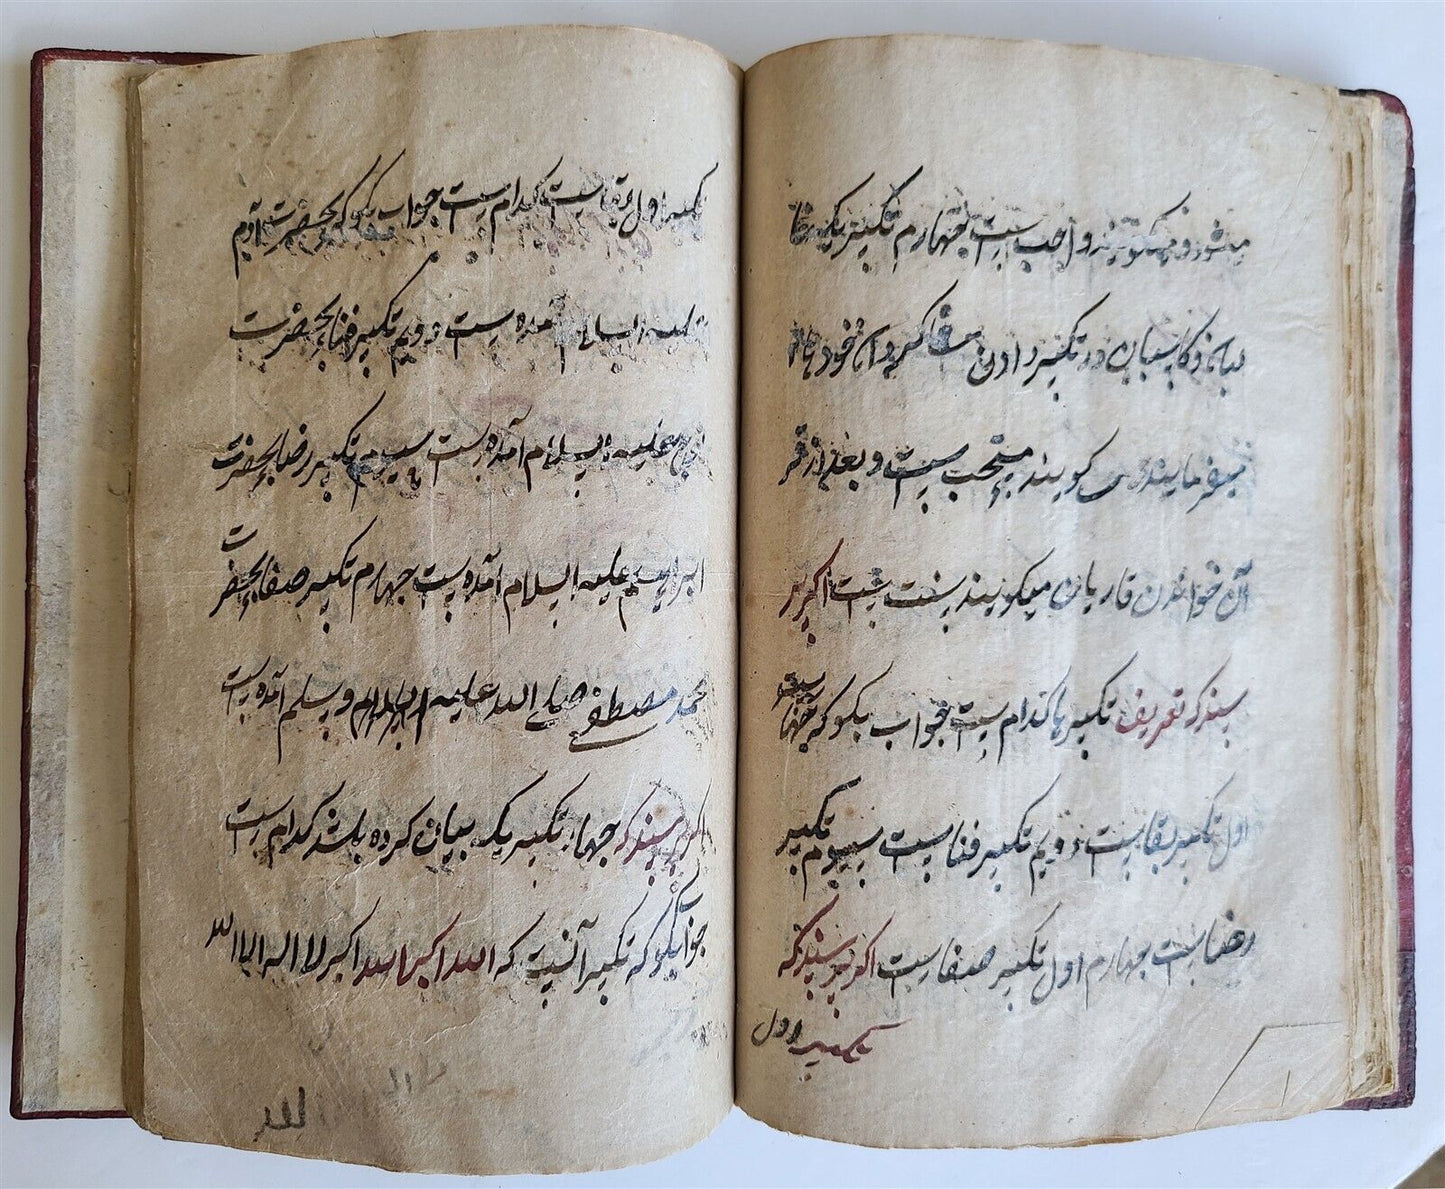 میشود و میگویند واجب است چهارم تکبیر یکه
در تکبیر دادن خود را
میفرمایند می گویند مستحب است و بعد از
آن خواندن قاریان میگویند سنت است اگر تر
پرسند که تعریف تکبیرها کدام است جواب بگو که چهار است
اول تکبیر بقا است دویم تکبیر فنا است سیوم تکبیر
رضا است چهارم اول تکبیر صفا است اگر پرسند که
تکبیر اول
تکبیر اول بقا است کدام است جواب بگو که بحضرت آدم
علیه السلام آمده است دویم تکبیر فنا بحضرت
نوح علیه السلام آمده است سیوم تکبیر رضا بحضرت
ابراهیم علیه السلام آمده است چهارم تکبیر صفا بحضرت
محمد مصطفی صلی الله علیه و سلم آمده است
اگر پرسند که چهار تکبیر یکه بیان کرده باشد کدام است
جواب بگو که تکبیر آنست که الله اکبر الله اکبر لا اله الا الله